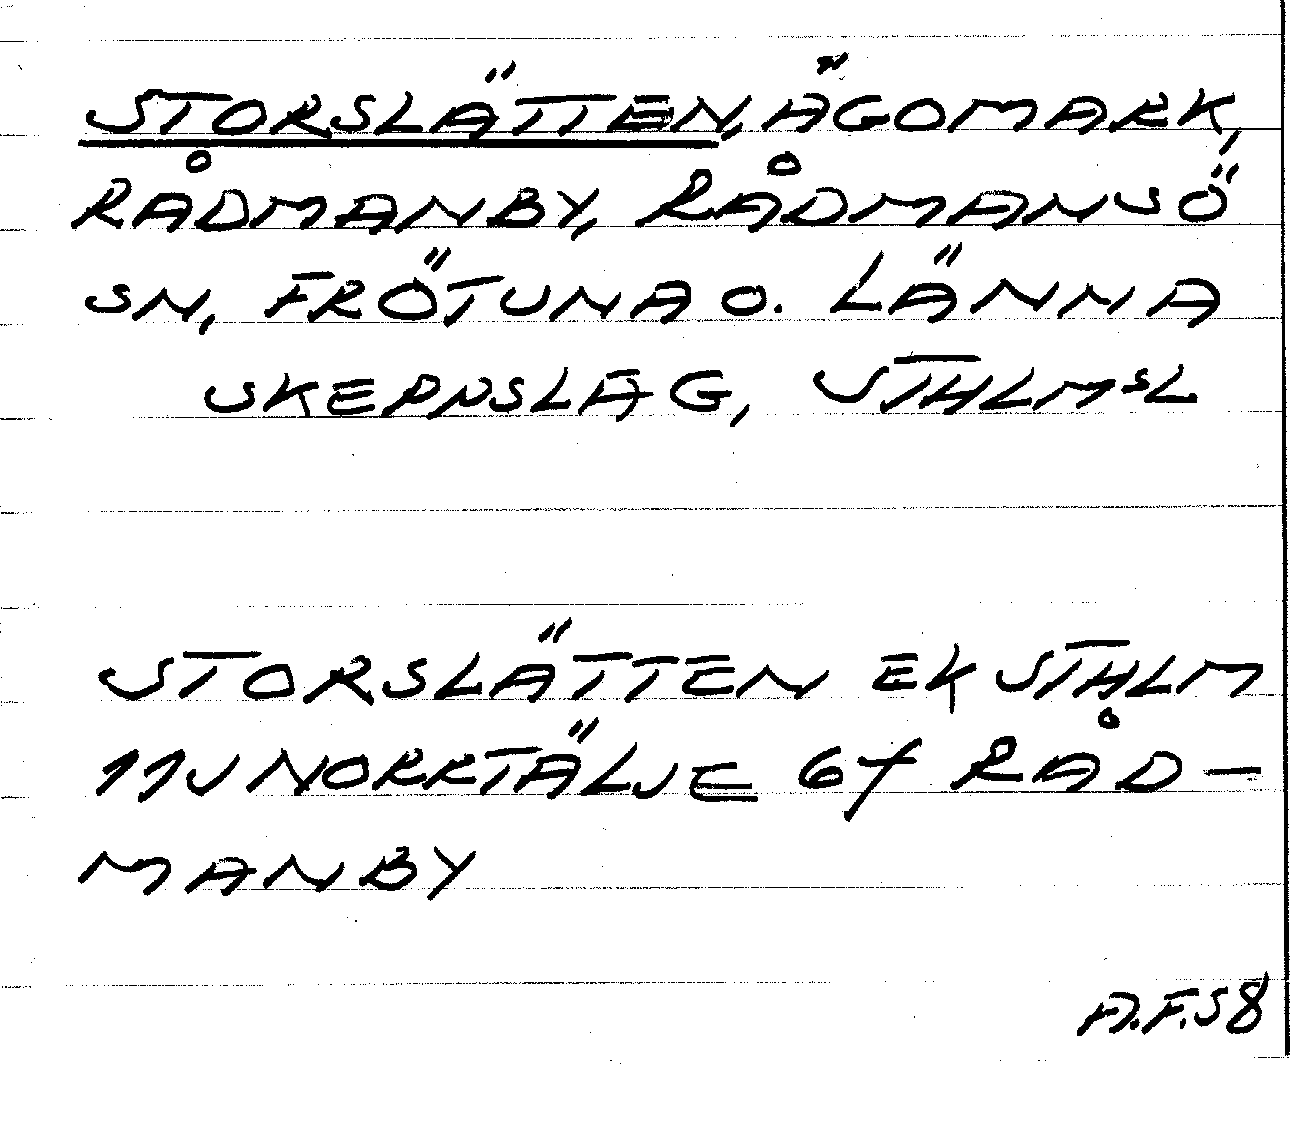 STORSLÄTTEN, ÄGOMARK,
RÅDMANBY, RÅDMANSÖ
SN, FRÖTUNA O. LÄNNA
SKEPPSLAG, STHLMSL
STORSLÄTTEN EK STHLM
11J NORRTÄLJE 6f RÅD-
MANBY
A.F.58